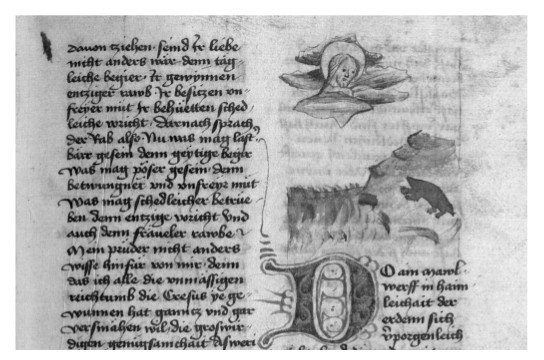 dauon cziehen · seind ir liebe
nicht anders wär · denn täg
leiche begier · Ir gewynnen
encziger rawb · Ir besitzen vn
freyer mut Ir behüetten sched
leiche voricht · Darnach sprach
der Rab also · Nu was mag last
bärr gesein denn geytige begir
was mag pöser gesein · denn
betwungner vnd vnfreyr mut
was mag schedleicher betrüe
ben denn entzige voricht Vnd
auch denn fräueler rawbe
Mein prüder nicht anders
wisse hinfür von mir · denn
das ich alle die vnmässigen
reichtumb die Cresus ye ge
wunnen hat gantz vnd gar
versmähen wil · die groswir
digen genügsamchait
D
O ain mawl
werff in haim
leichait der
erdenn sich
verporgenleich